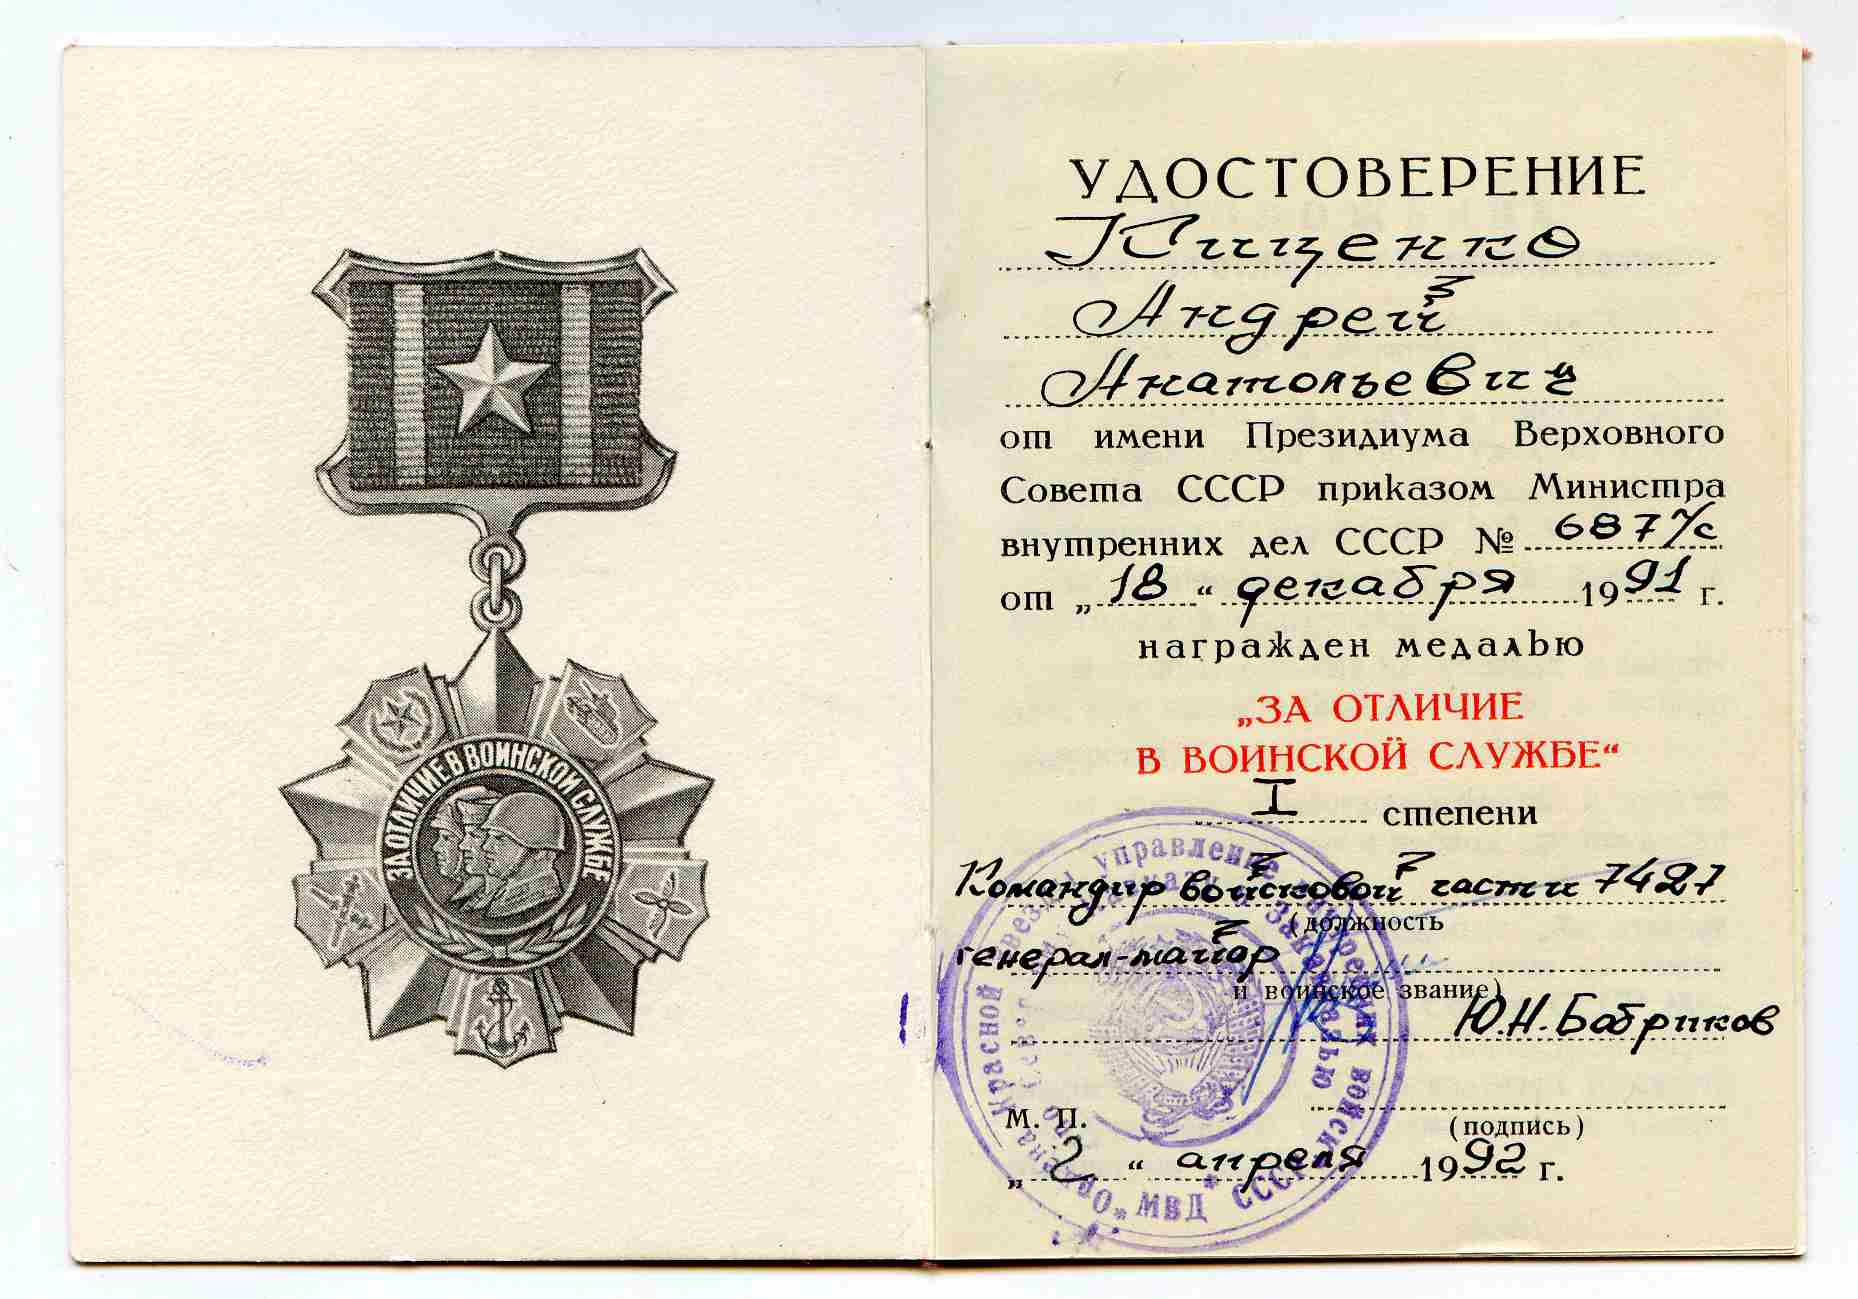 ЗА ОТЛИЧИЕ В ВОИНСКОЙ СЛУЖБЕ
УДОСТОВЕРЕНИЕ
Кищенко
Андрей
Анатольевич
от имени Президиума Верховного
Совета СССР приказом Министра
внутренних дел СССР № 687 л/с
от „18“ декабря 1991 г.
награжден медалью
„ЗА ОТЛИЧИЕ
В ВОИНСКОЙ СЛУЖБЕ“
I степени
Командир войсковой части 7427
(должность
генерал-майор
и воинское звание)
Ю.Н. Бабриков
М. П.
(подпись)
„2“ апреля 1992 г.
Ордена Красной Звезды управление внутренних войск
МВД СССР
Закавказью